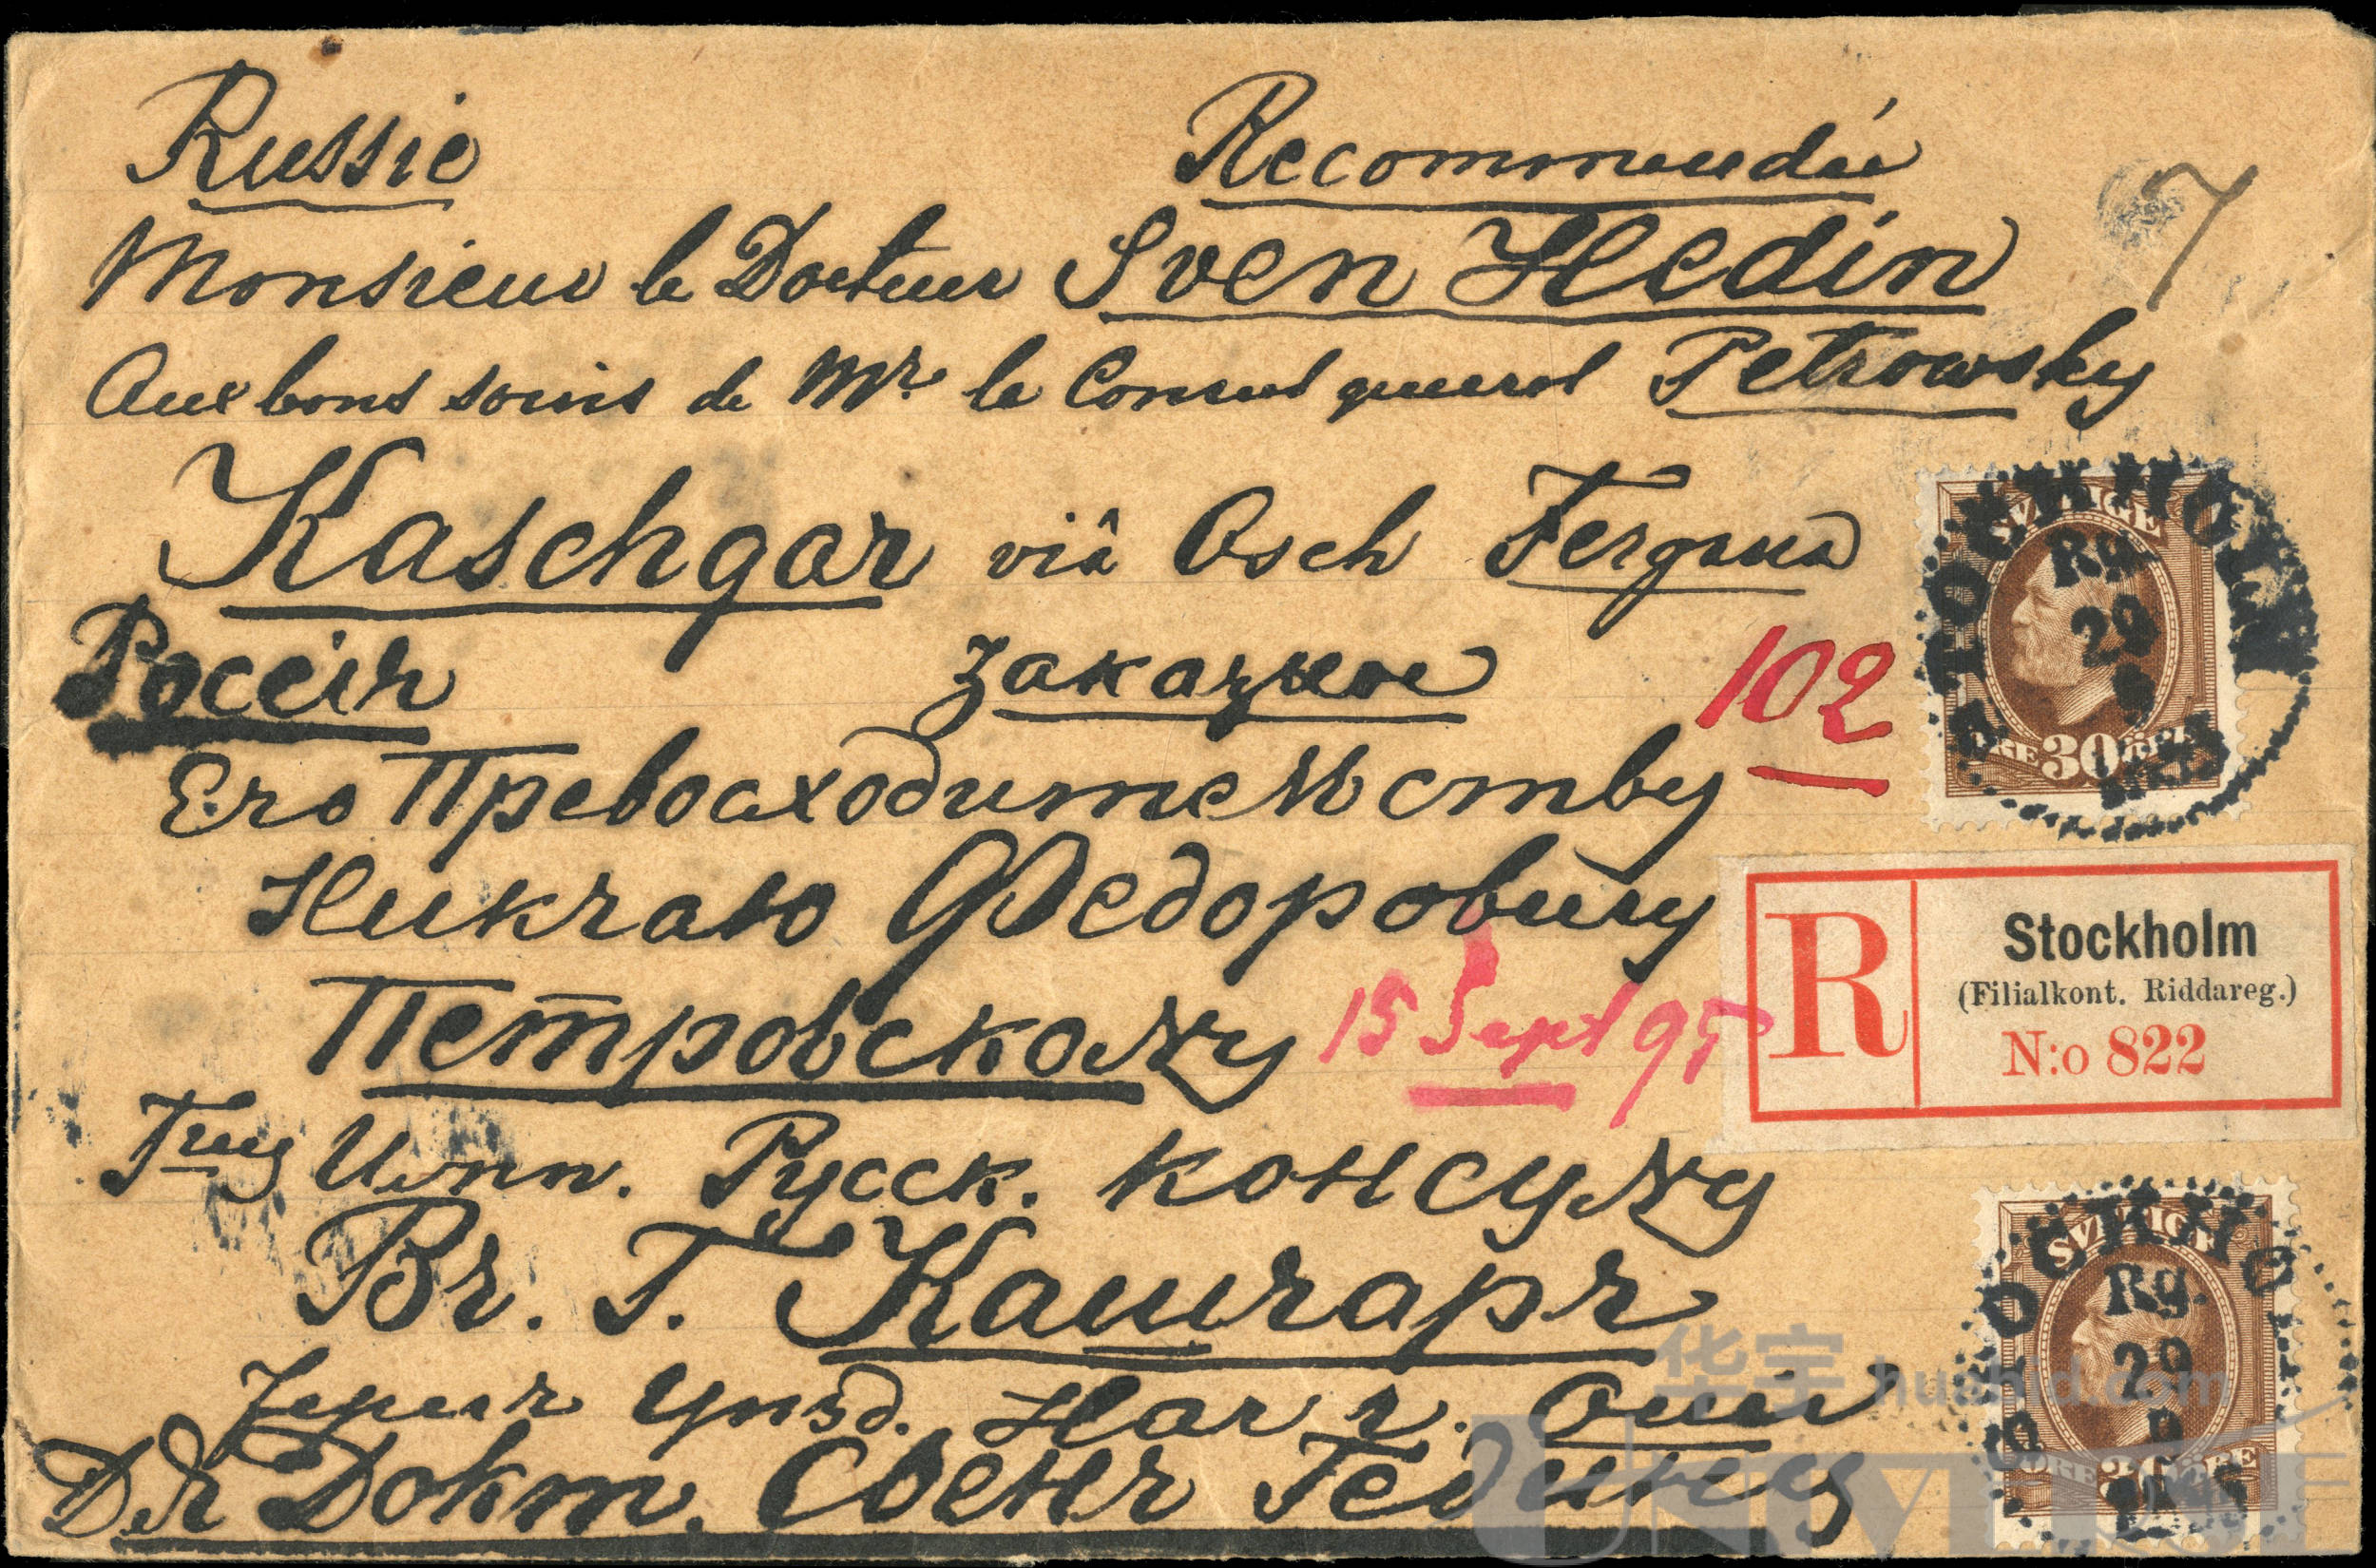 Russie Recommendée
Monsieur le Docteur Sven Hedin
Aux bons soins de Mr. le Consul general Petrowsky
Kaschgar viâ Osch Fergana
Россія заказное
102
Его Превосходительству
Николаю Федоровичу
Петровскому
15 Sept 95
Гну Имп. Русск. консулу
Въ. Г. Кашгаръ
Уѣзд. г. Ошъ
Докт. Свенъ Гедину
SVERIGE
30 ÖRE
STOCKHOLM
Rg.
29
8
R
Stockholm
(Filialkont. Riddareg.)
N:o 822
SVERIGE
Rg.
29
8
30 ÖRE
华宇 huabid.com